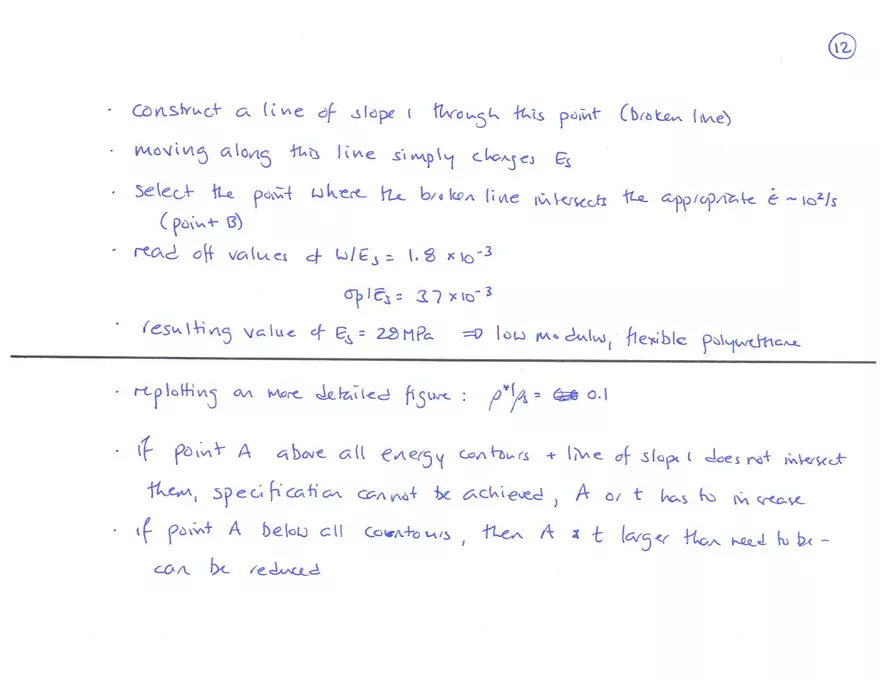 12
· construct a line of slope 1 through this point (broken line)
· moving along this line simply changes Es
· select the point where the broken line intersects the appropriate ε̇ ~ 10²/s
(point B)
· read off values of W/Es = 1.8 × 10⁻³
σp/Es = 3.7 × 10⁻³
· resulting value of Es = 28 MPa ⇒ low modulus, flexible polyurethane
· replotting on more detailed figure: ρ*/ρs = 0.1
· if point A above all energy contours + line of slope 1 does not intersect
them, specification cannot be achieved, A or t has to increase
· if point A below all countours, then A & t larger than need to be -
can be reduced